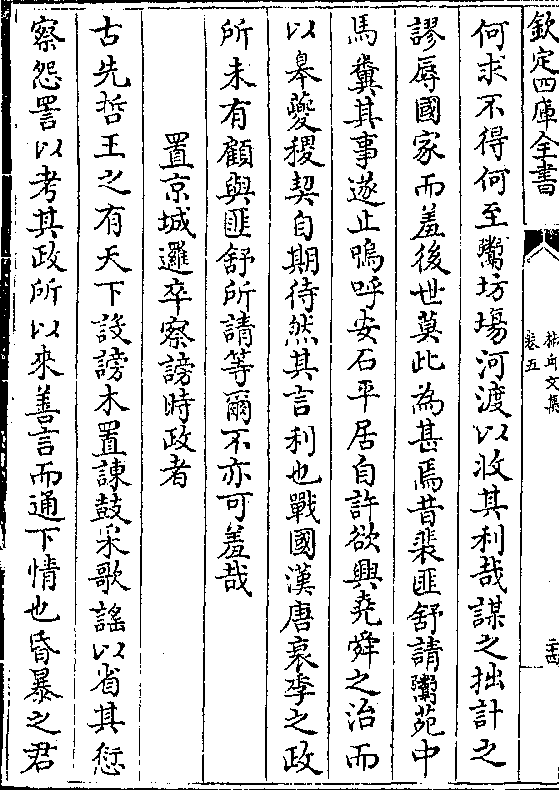 欽定四庫全書
林間文集
卷五
二十四
何求不得何至鬻坊場河渡以收其利哉謀之拙計之
謬辱國家而羞後世莫此為甚焉昔裴匪舒請鬻苑中
馬糞其事遂止嗚呼安石平居自許欲興堯舜之治而
以皋夔稷契自期待然其言利也戰國漢唐衰季之政
所未有顧與匪舒所請等爾不亦可羞哉
置京城邏卒察謗時政者
古先哲王之有天下設謗木置諫鼓采歌謠以省其愆
察怨詈以考其政所以來善言而通下情也昏暴之君